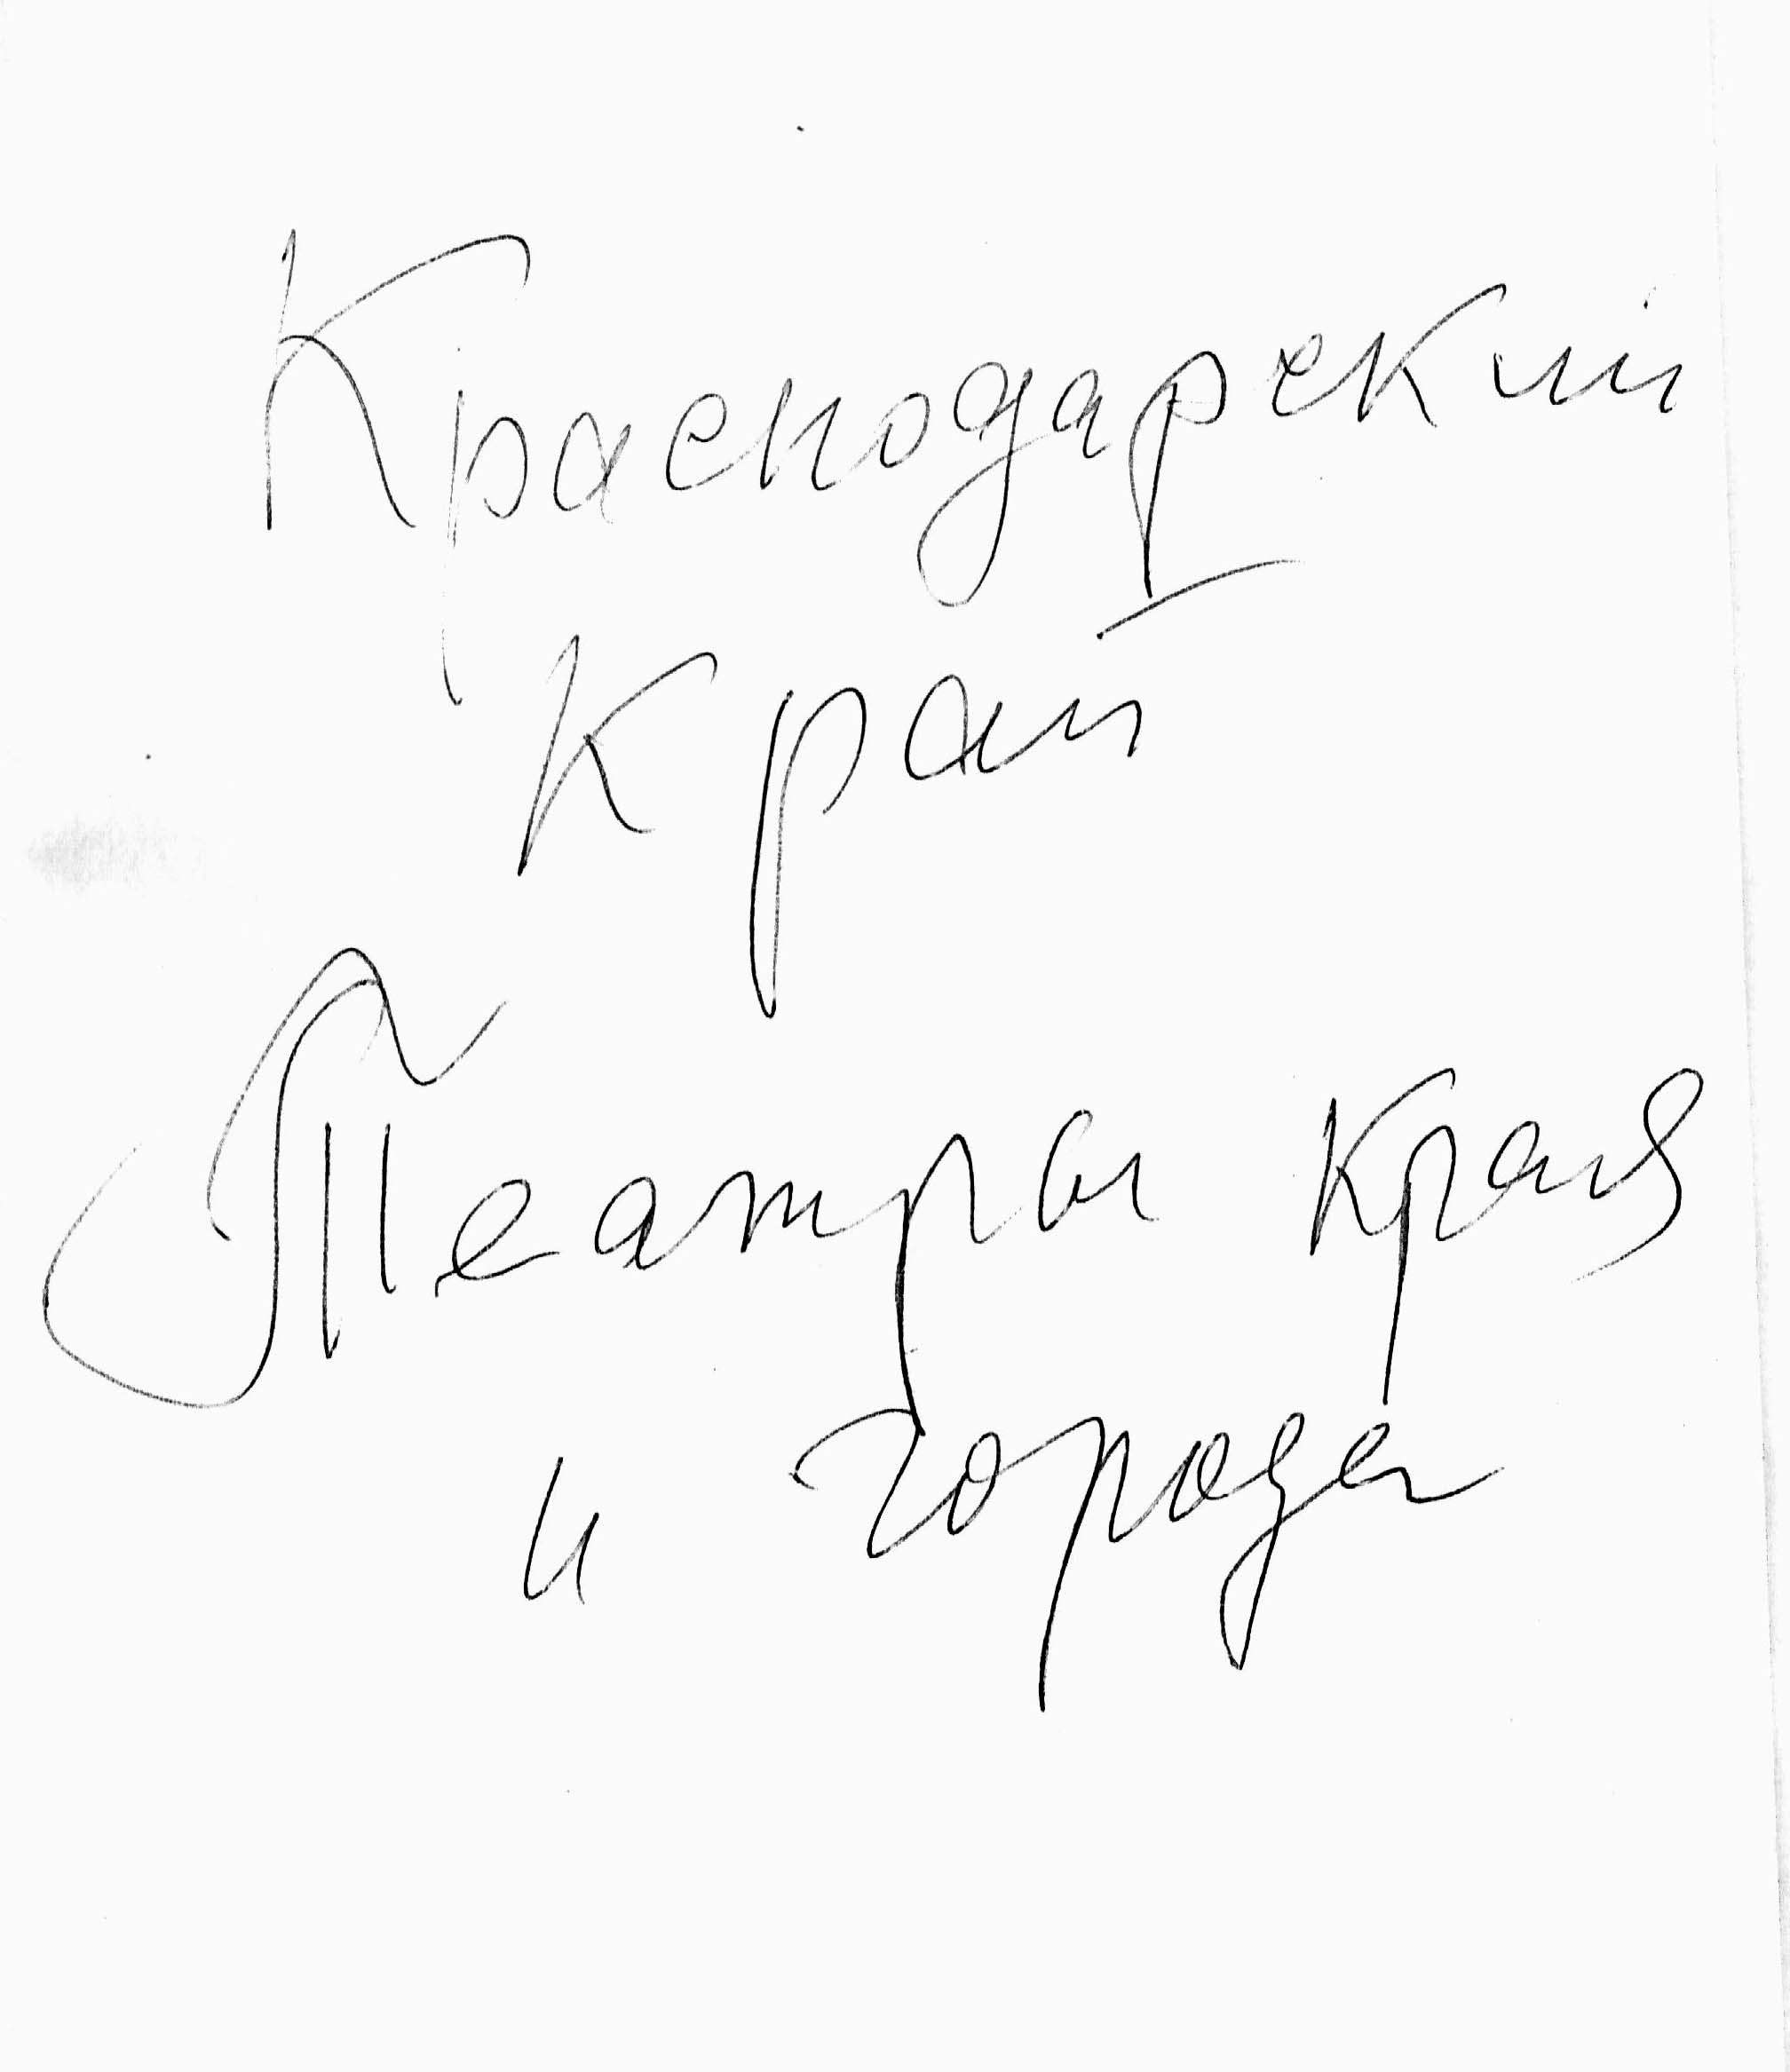 Краснодарский
край
Театры края
и города